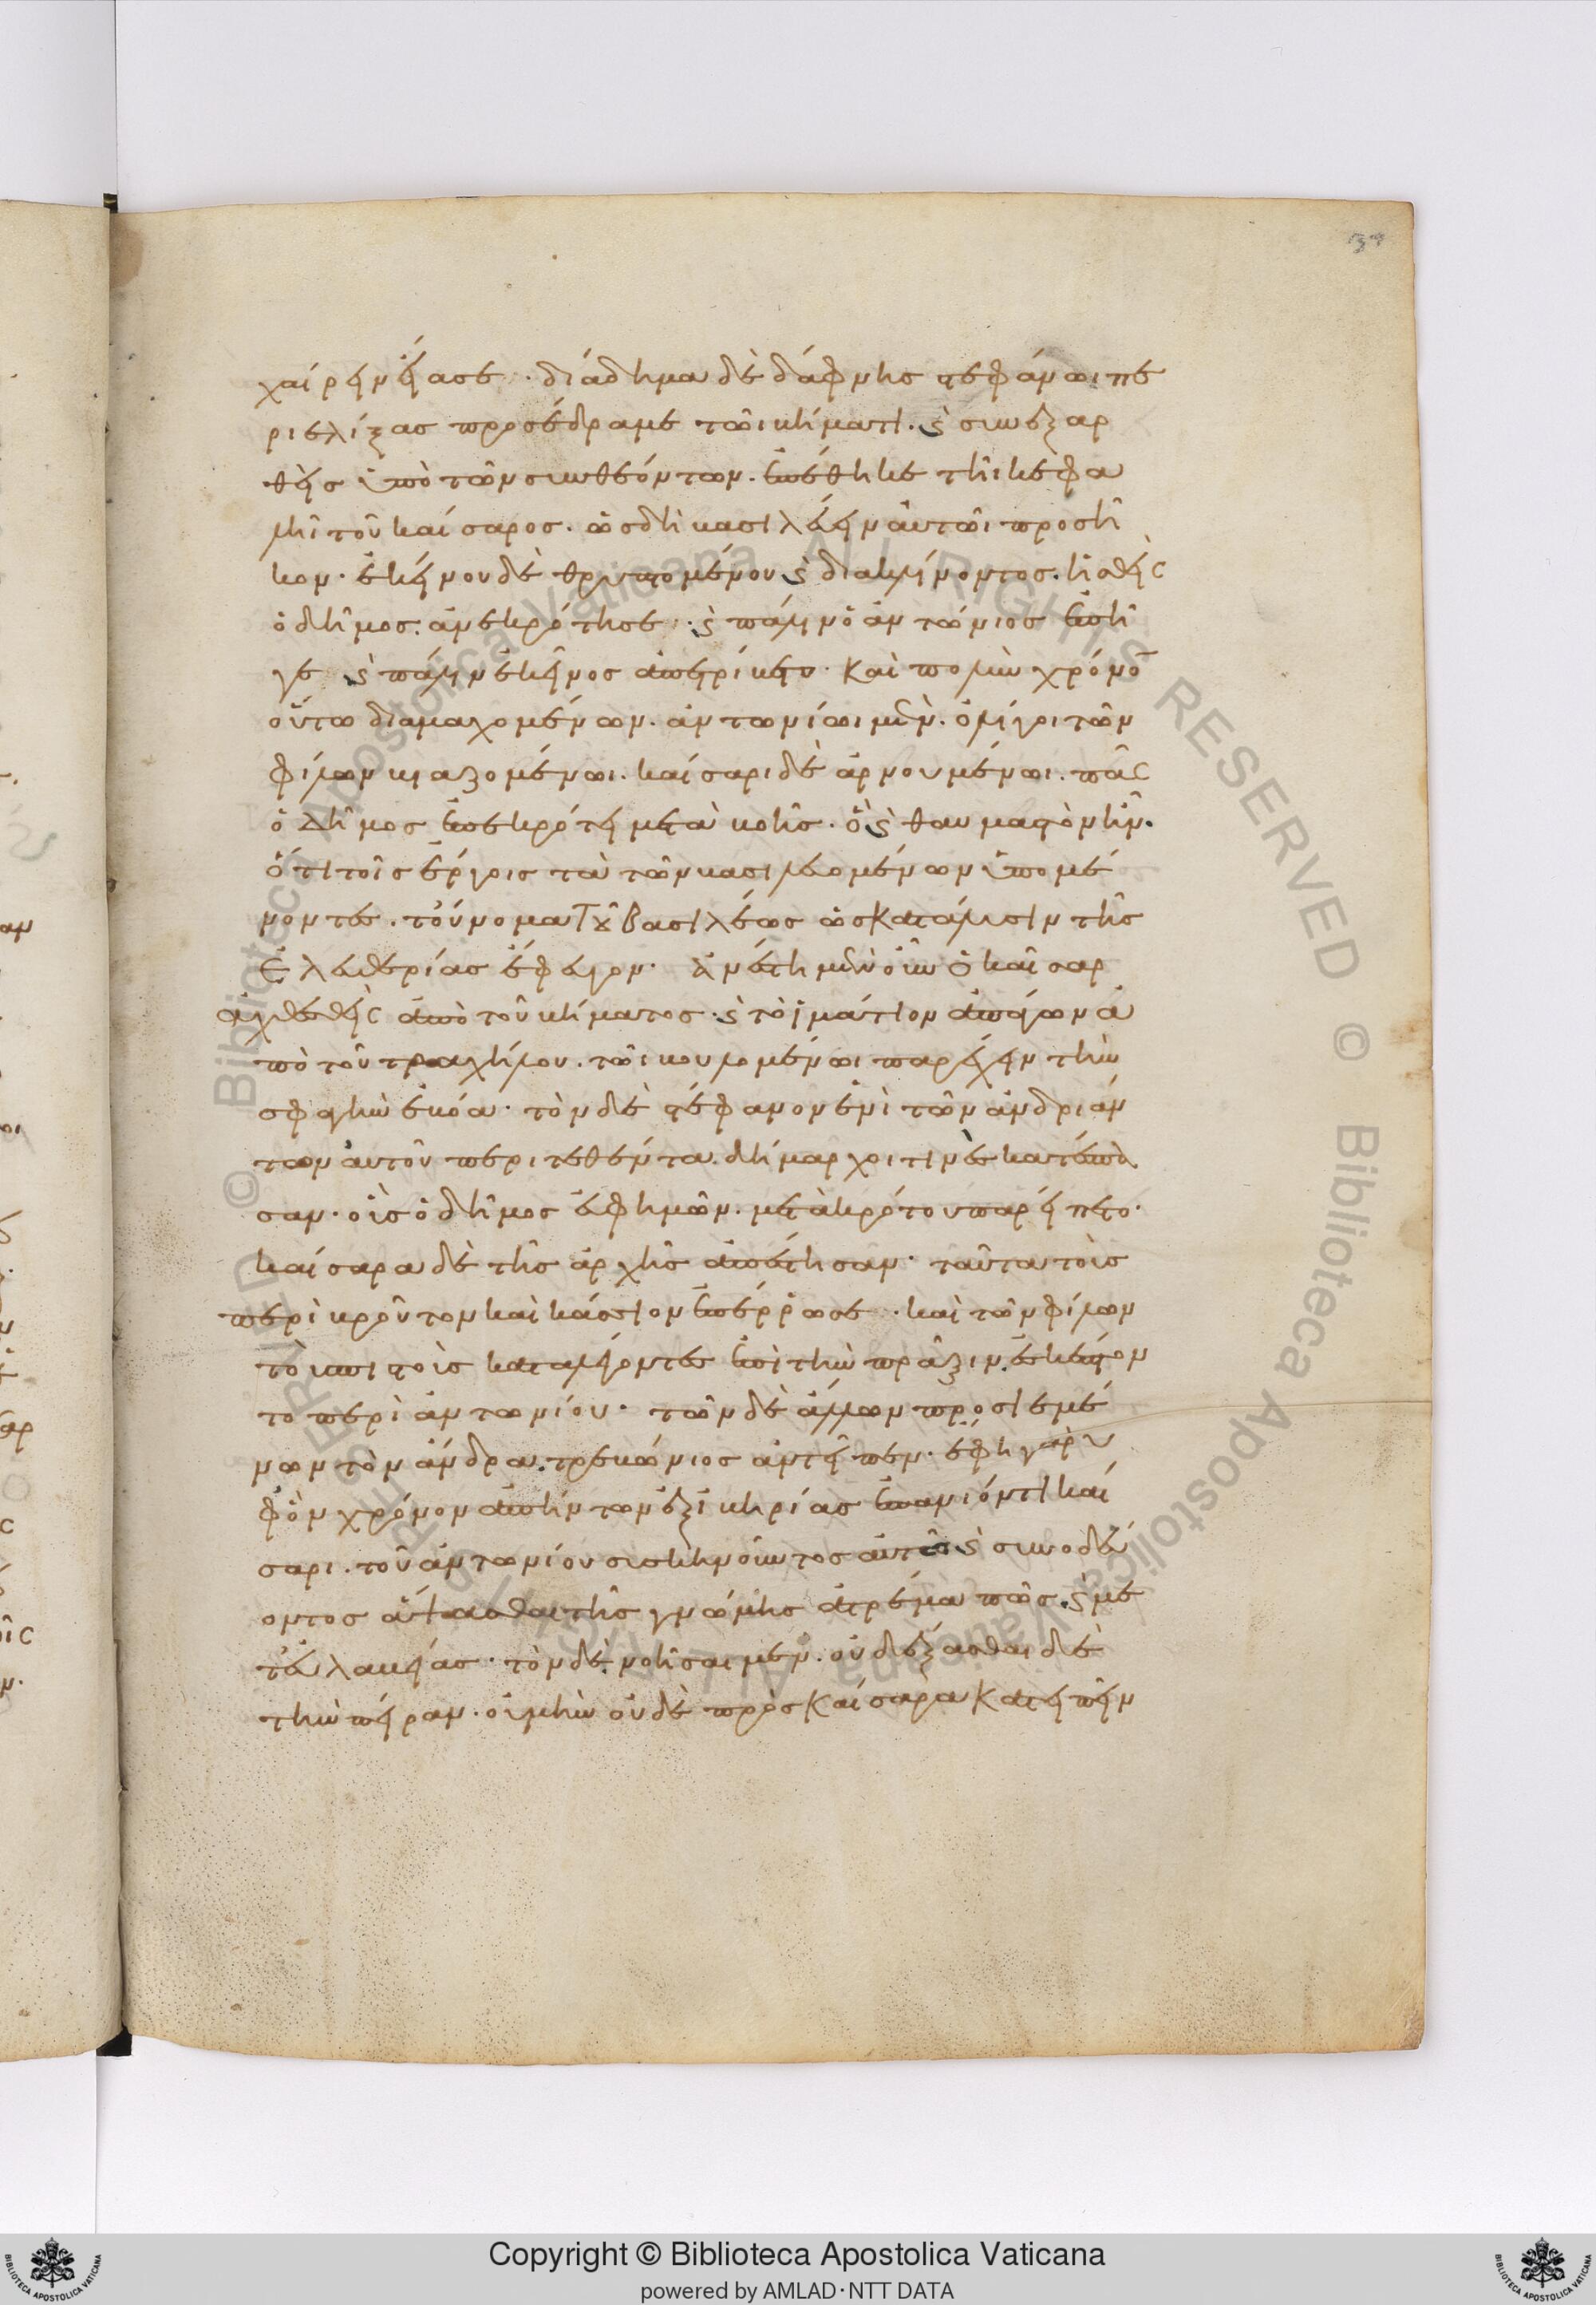 χαίρειν εἴασε· διάδημα δὲ δάφνης στεφάνωι πε
ριελίξας προσέδραμε τῶι βήματι. ϛ̀ συνεξαρ
θεὶς ὑπὸ τῶν συνθεόντων. ἐπέθηκε τῆι κεφα
λῆι τοῦ καίσαρος. ὡς δὴ βασιλεύειν αὐτῶι προσῆ
κον· ἐκείνου δὲ θρυπτομένου ϛ̀ διακλίνοντος. ἡσθεὶς
ὁ δῆμος ἀνεκρότησε· ϛ̀ πάλιν ὁ ἀντώνιος ἐπῆ
γε ϛ̀ πάλιν ἐκεῖνος ἀπετρίβετο· καὶ πολὺν χρόνο̅
οὕτω διαμαχομένων. ἀντωνίωι μὲν. ὀλίγοι τῶν
φίλων βιαζομένωι. καίσαρι δὲ ἀρνουμένωι. πᾶς
ὁ δῆμος ἐπεκρότει μετὰ βοῆς· ὃ ϛ̀ θαυμαστὸν ἦν.
ὅτι τοῖς ἔργοις τὰ τῶν βασιλευομένων ὑπομέ
νοντες. τοὔνομα τοῦ βασιλέως ὡς κατάλυσιν τῆς
ἐλευθερίας ἔφευγον· ἀνέστη μὲν οὖν ὁ καῖσαρ
ἀχθεσθεὶς ἀπὸ τοῦ βήματος· ϛ̀ τὸ ἱμάτιον ἀπάγων ἀ
πὸ τοῦ τραχήλου. τῶι βουλομένωι παρέχειν τὴν
σφαγὴν ἐβόα· τὸν δὲ στέφανον ἑνὶ τῶν ἀνδριάν
των αὐτοῦ περιτεθέντα. δήμαρχοι τινὲς κατέσπα
σαν· οὓς ὁ δῆμος εὐφημῶν. μετὰ κρότου παρείπετο·
καίσαρα δὲ τῆς ἀρχῆς ἀπέστησαν· ταῦτα τοὺς
περὶ βροῦτον καὶ κάσσιον ἐπέρρωσε· καὶ τῶν φίλων
τοὺς πιστοὺς καταλέγοντες ἐπὶ τὴν πρᾶξιν. ἐσκέπτον
το περὶ ἀντωνίου· τῶν δὲ ἄλλων προσιεμέ
νων τὸν ἄνδρα. τρεβώνιος ἀντεῖπεν· ἔφη γὰρ ὑ
φ’ ὃν χρόνον ἀπήντων ἐξ ἰβηρίας ἐπανιόντι καί
σαρι. τοῦ ἀντωνίου συσκηνοῦντος αὐτῶ ϛ̀ συνοδεύ
οντος ἅψασθαι τῆς γνώμης ἀτρέμα πῶς. ϛ̀ με
τ’ εὐλαβείας· τὸν δὲ νοῆσαι μεν. οὐ δέξασθαι δὲ
τὴν πεῖραν· οὐ μὴν οὐδὲ πρὸς καίσαρα κατειπεῖν